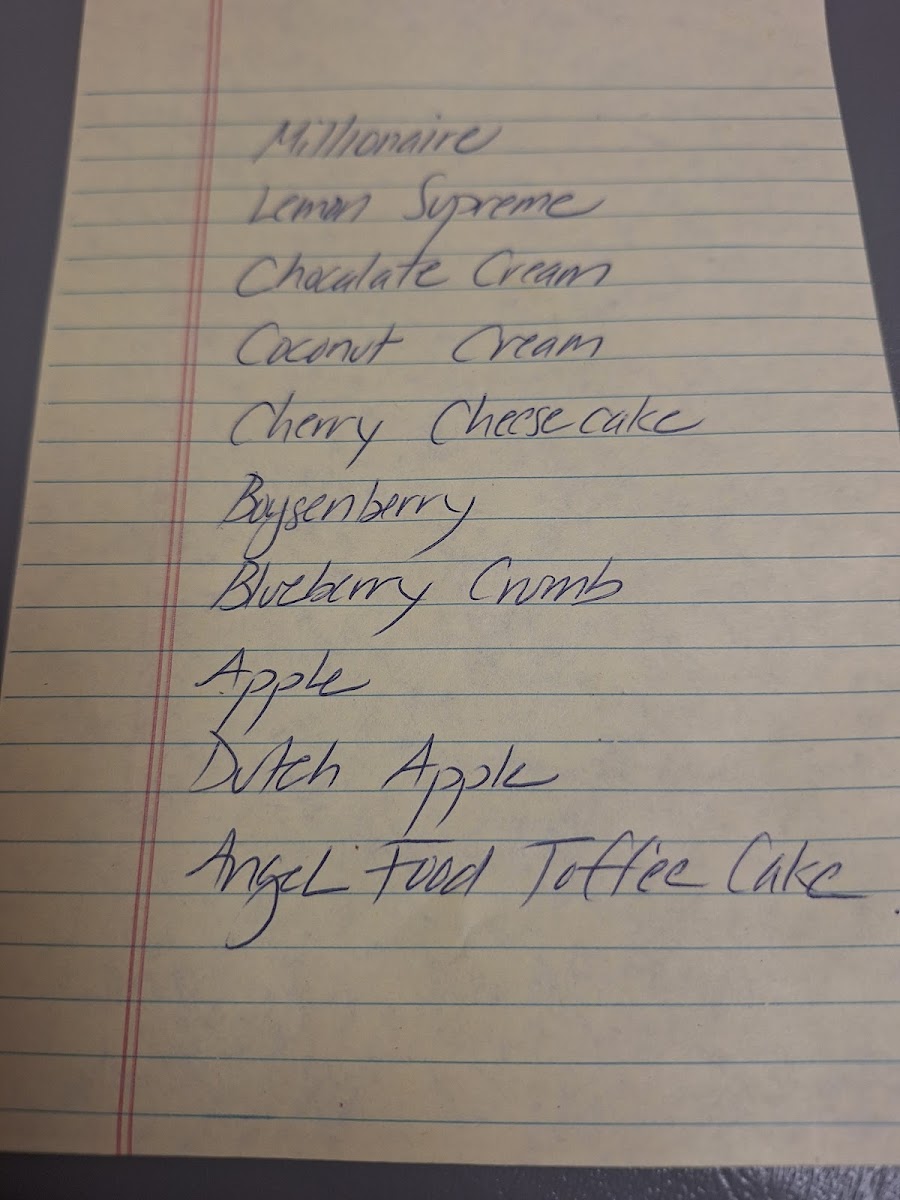 Millionaire
Lemon Supreme
Chocalate Cream
Coconut Cream
Cherry Cheesecake
Boysenberry
Blueberry Crumb
Apple
Dutch Apple
Angel Food Toffee Cake